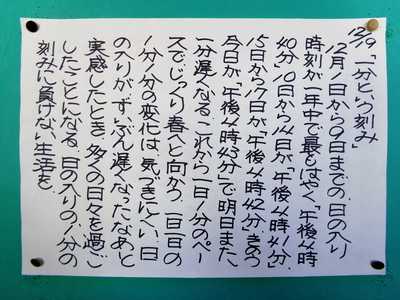 12/19「一分という刻み」
12月1日から9日までの、日の入り
時刻が一年中で最もはやく、「午後4時
40分」、10日から14日が「午後4時41分」、
15日から17日が「午後4時42分」、きのう
今日が、「午後4時43分」で、明日また、
一分遅くなる。これから一日1分のペー
スで、じっくり春へと向かう。一日一日の
1分、1分の変化は、気づきにくい。日
の入りが、ずいぶん遅くなったなあと
実感したとき、多くの日々を過ご
したことになる。日の入りの1分の
刻みに負けない生活を。